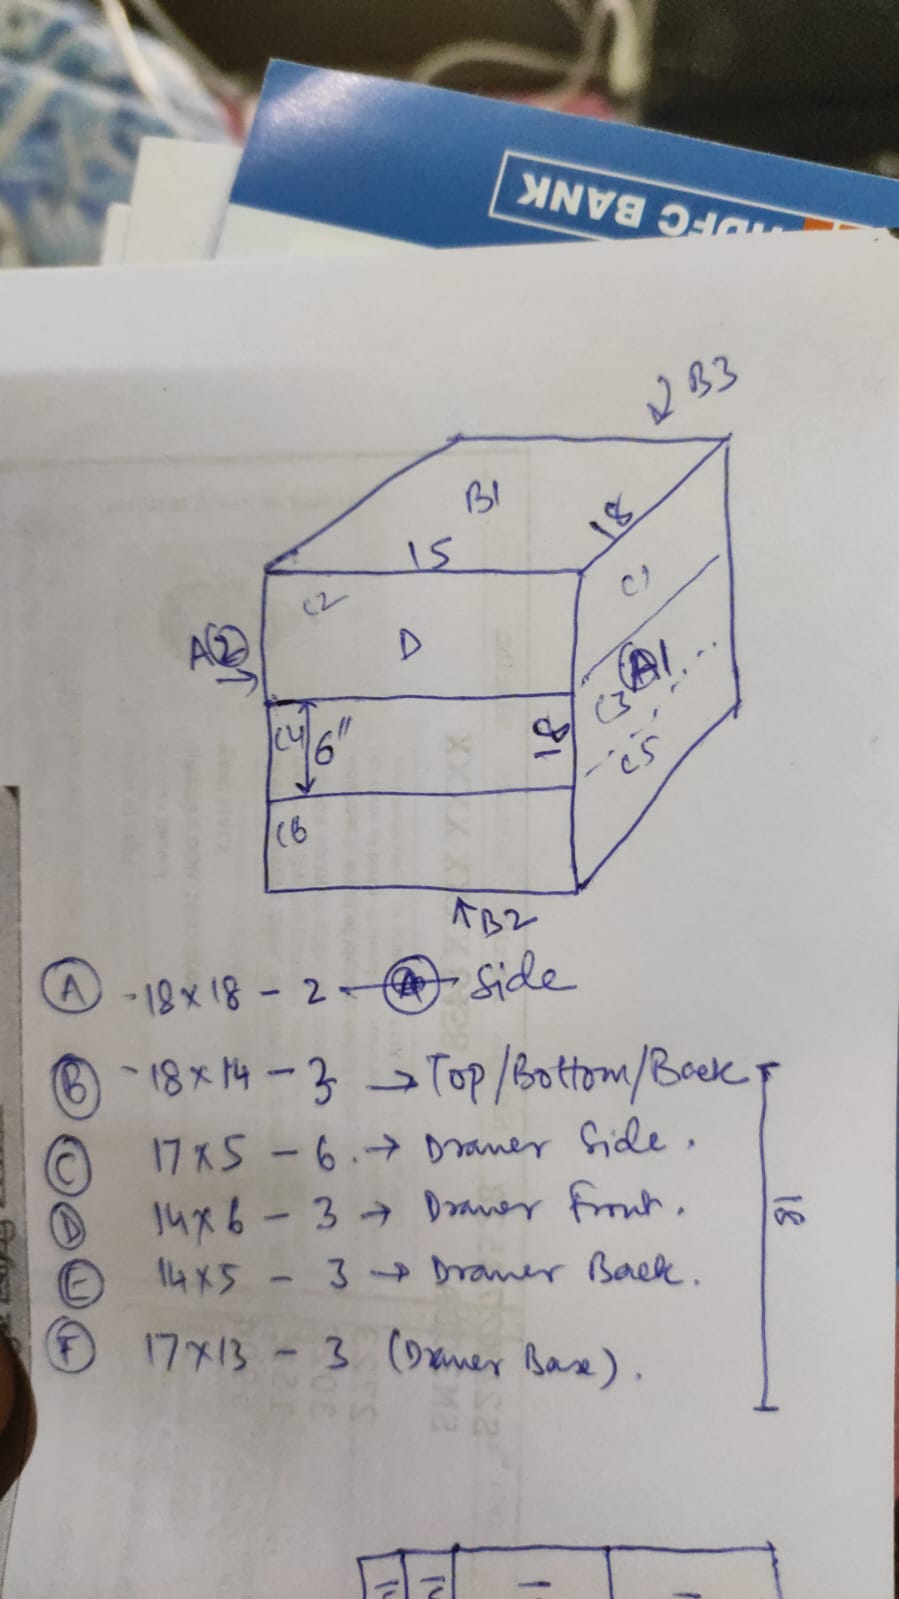 HDFC BANK
B3
B1
18
15
C2
C1
A(2)
D
A1
C3
C4
6"
18
C5
C6
B2
A -18x18 - 2 - Side
B -18x14 - 3 → Top/Bottom/Back
C 17x5 - 6. → Drawer Side.
D 14x6 - 3 → Drawer Front.
E 14x5 - 3 → Drawer Back.
F 17x13 - 3 (Drawer Base).